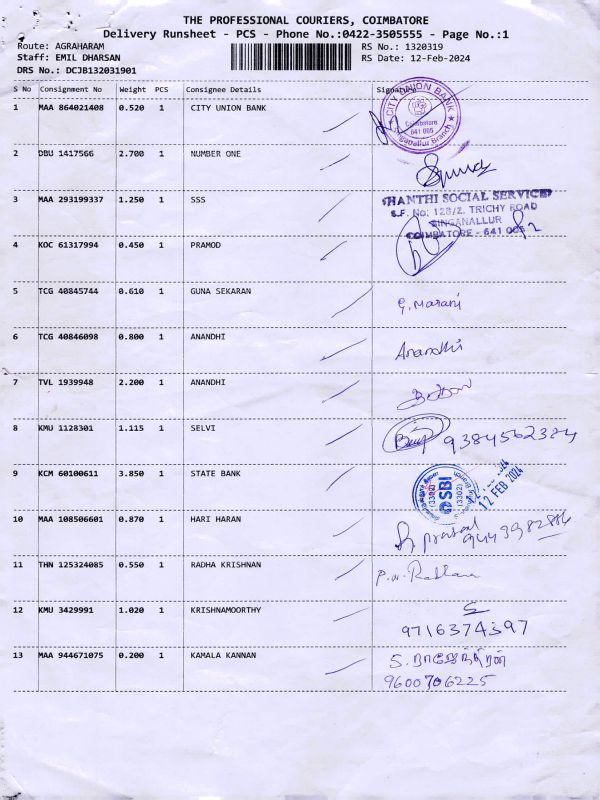 THE PROFESSIONAL COURIERS, COIMBATORE
Delivery Runsheet - PCS - Phone No.:0422-3505555 - Page No.:1
Route: AGRAHARAM RS No.: 1320319
Staff: EMIL DHARSAN RS Date: 12-Feb-2024
DRS No.: DCJB132031901
S No Consignment No Weight PCS Consignee Details Signature
1 MAA 864021408 0.520 1 CITY UNION BANK
CITY UNION BANK
Coimbatore
641 005
Singanallur Branch
2 DBU 1417566 2.700 1 NUMBER ONE
3 MAA 293199337 1.250 1 SSS
SHANTHI SOCIAL SERVICE
S.F. No: 128/2, TRICHY ROAD
SINGANALLUR
COIMBATORE - 641 005
4 KOC 61317994 0.450 1 PRAMOD
5 TCG 40845744 0.610 1 GUNA SEKARAN
6 TCG 40846098 0.800 1 ANANDHI Anandhi
7 TVL 1939948 2.200 1 ANANDHI
8 KMU 1128301 1.115 1 SELVI 9384562384
9 KCM 60100611 3.850 1 STATE BANK
SBI
(3302) (3302)
12 FEB 2024
10 MAA 108506601 0.870 1 HARI HARAN
11 THN 125324085 0.550 1 RADHA KRISHNAN
12 KMU 3429991 1.020 1 KRISHNAMOORTHY
9716374397
13 MAA 944671075 0.200 1 KAMALA KANNAN
9600706225